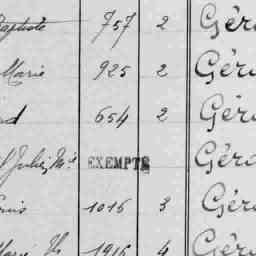 Baptiste 757 2 Géra
Marie 925 2 Géra
654 2 Géra
Julie, Mie EXEMPTE Géra
1016 3 Géra
Marie Th 1916 4 Géra